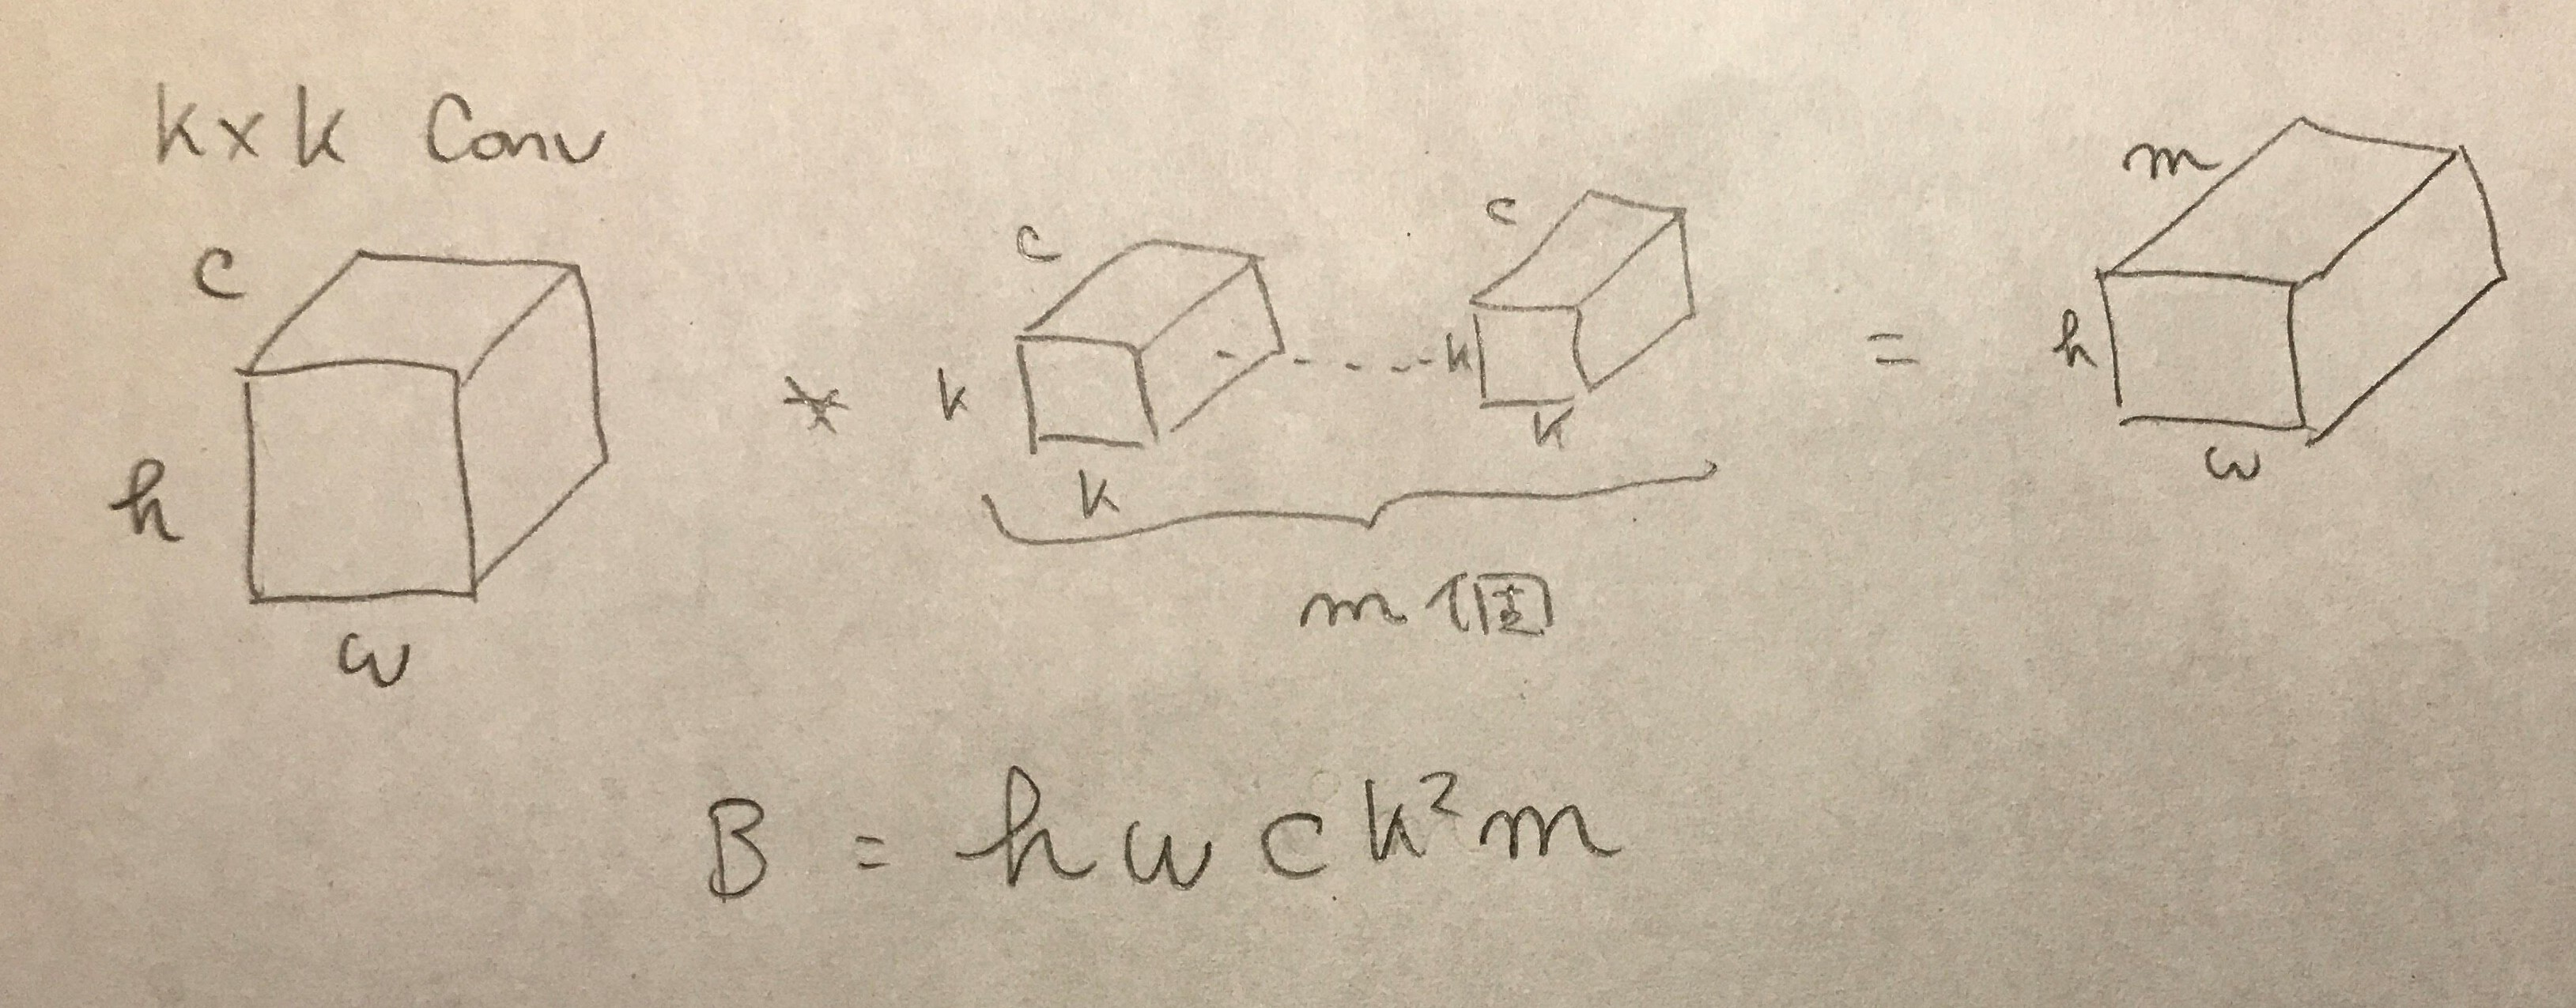 k×k Conv
c
h
w
*
c
k
k
-----
c
k
k
m個
=
m
h
w
B = h w c k² m